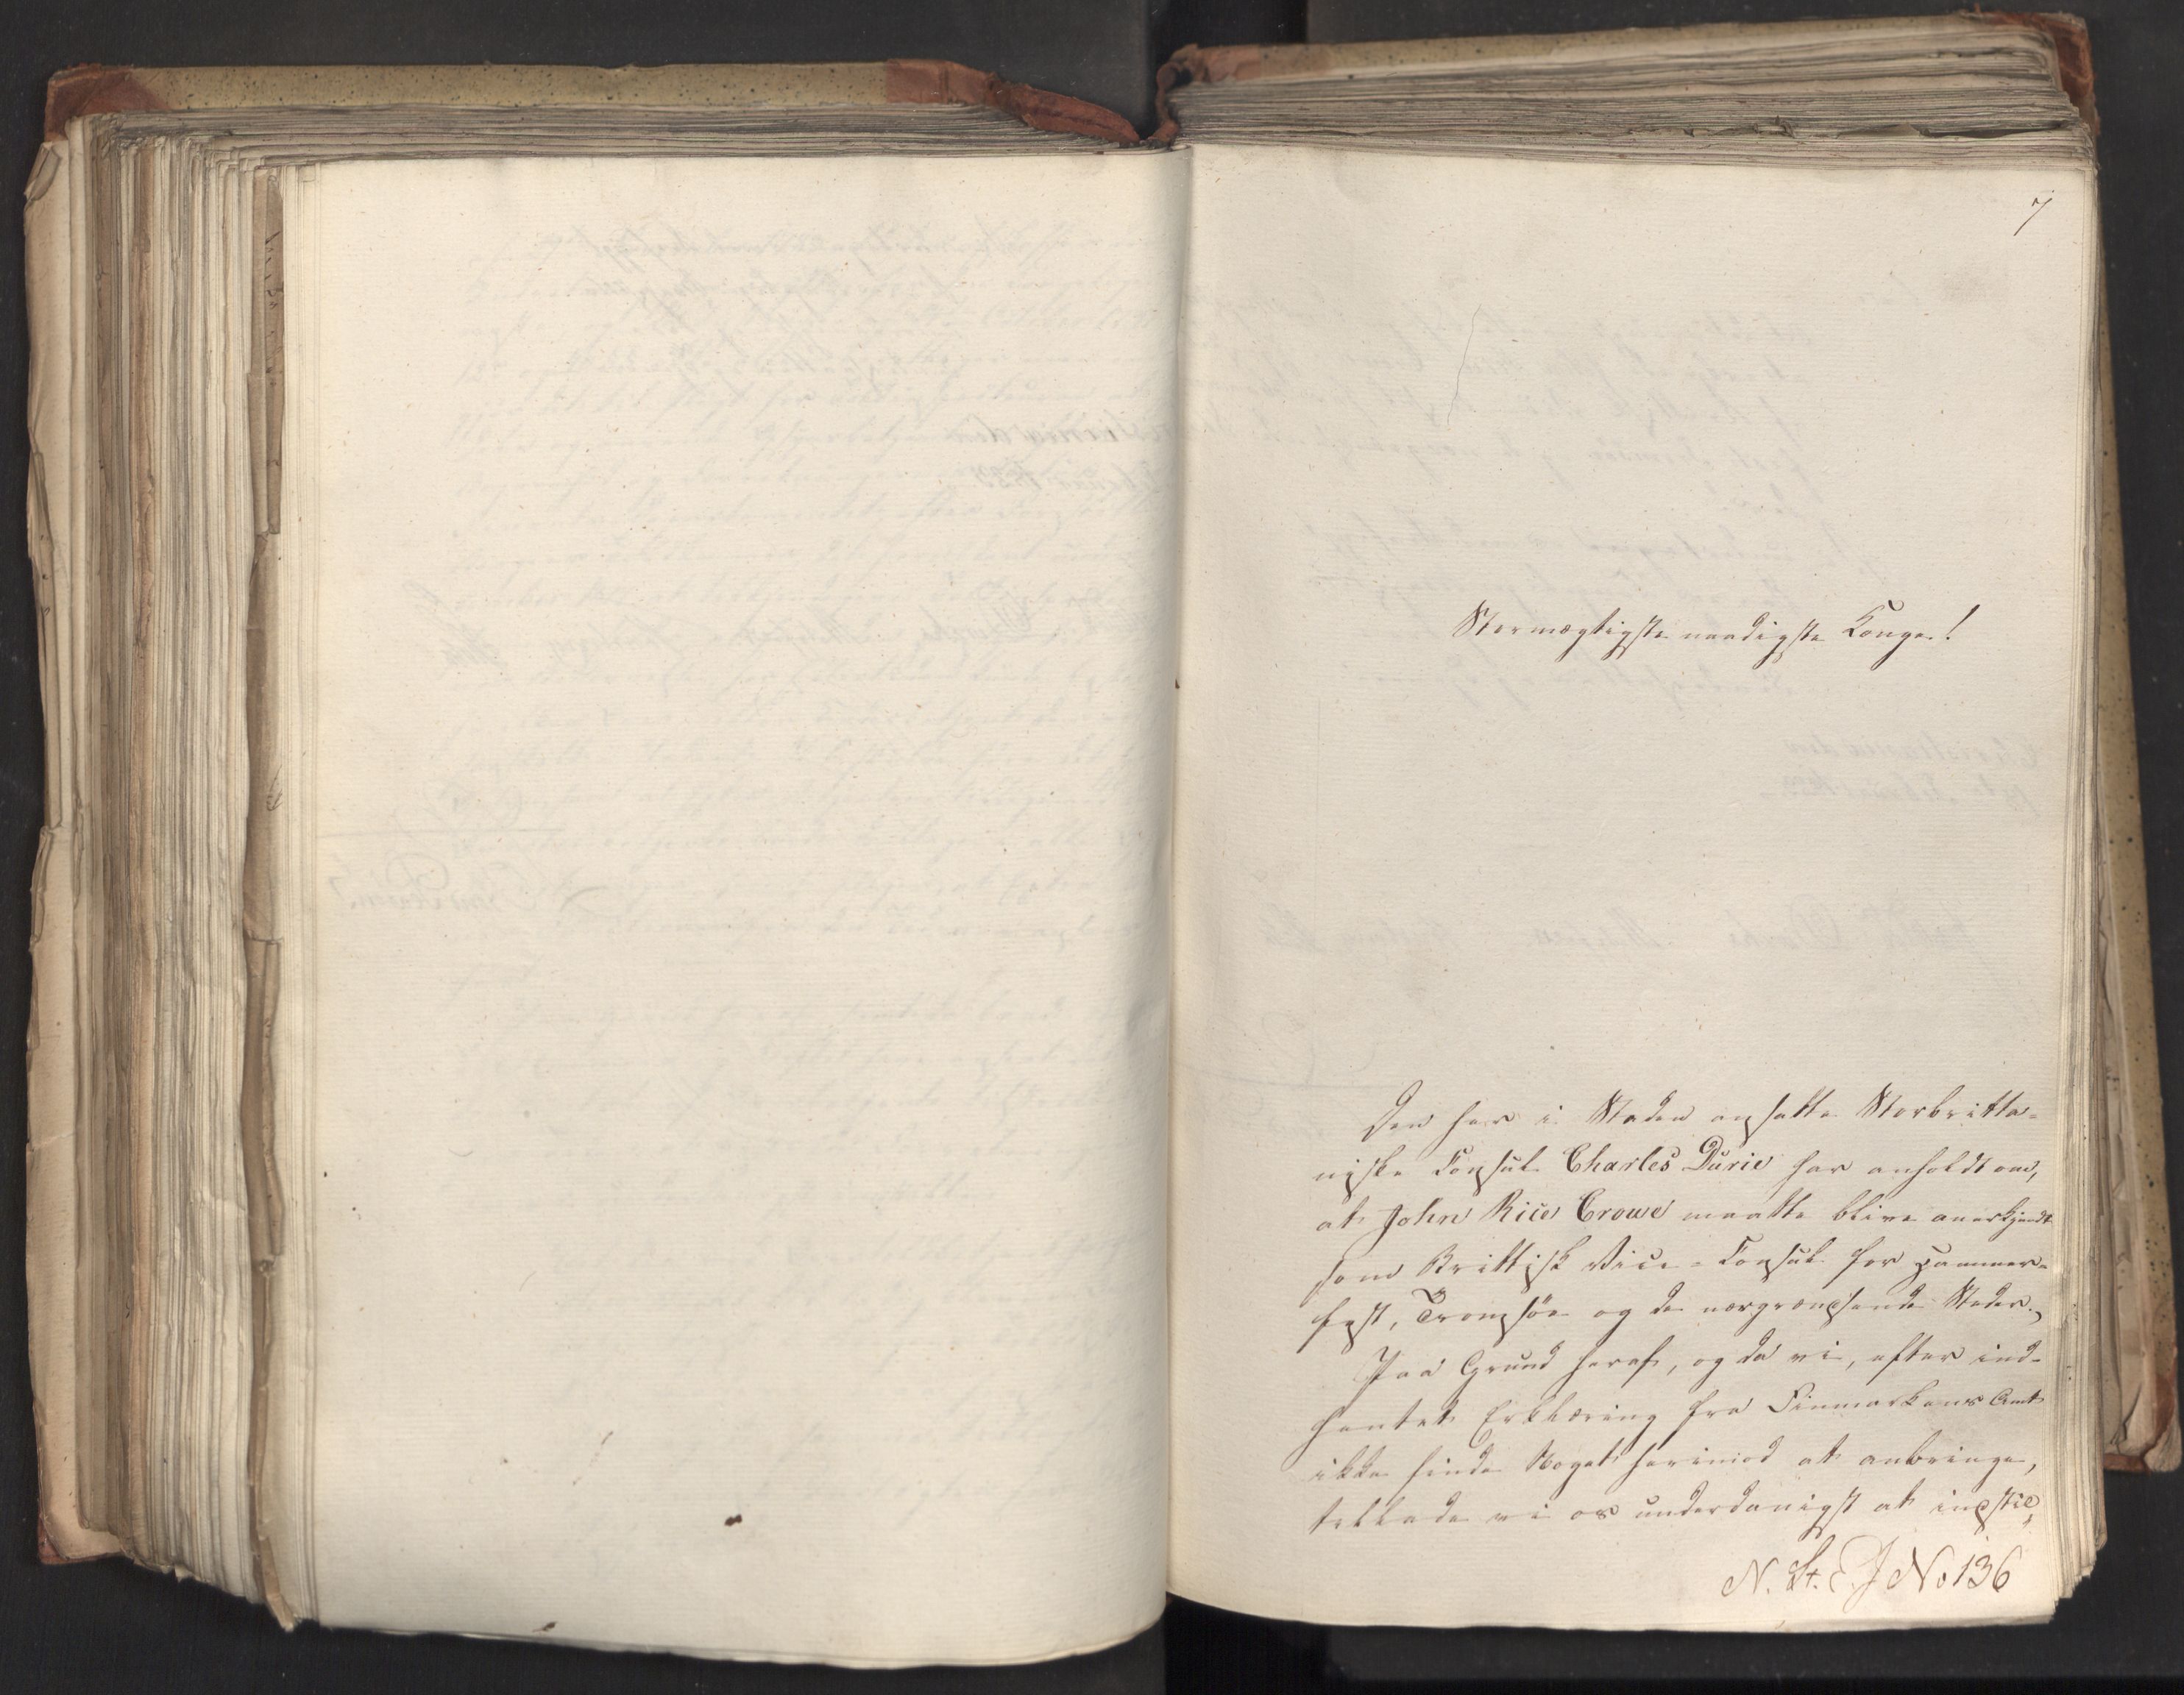 7
Stormægtigste naadigste Konge!
Den her i Staden ansatte Storbritta-
niske Consul Charles Durie har anholdt om,
at John Rice Crowe maatte blive anerkjendt
som Brittisk Vice-Consul for Hammer-
fest, Tromsöe og de nærgrændsende Steder.
Paa Grund heraf, og da vi, efter ind-
hentet Erklæring fra Finmarkens Amt
ikke finde Noget herimod at anbringe,
tillade vi os underdanigst at indstille,
N. St. E. J No 136